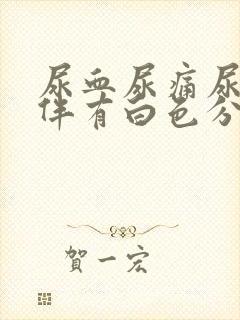 尿血尿痛尿
伴有白色分
賀一宏